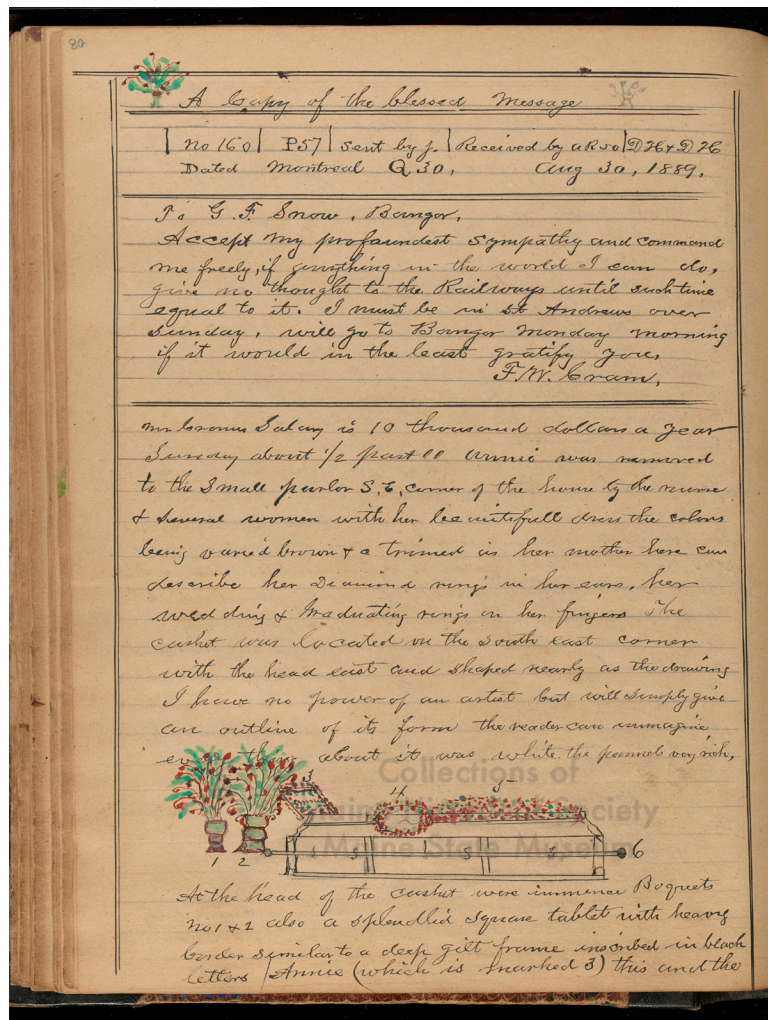 80
A Copy of the blessed Message
| No 160 | P57 | Sent by J. | Received by a R 50 | D H & D H
Dated Montreal Q 30, Aug 30, 1889.
To G. F. Snow, Bangor,
Accept my profoundest sympathy and command
me freely, if anything in the world I can do,
give no thought to the Railways until such time
equal to it. I must be in St Andrews over
Sunday, will go to Bangor Monday morning
if it would in the least gratify you,
F. W. Cram,
Mr Crams Salary is 10 thousand dollars a year
Sunday about 1/2 past Annie was removed
to the Small parlor S, E, corner of the house by the nurse
& several women with her beautifull dress the colors
being varied brown & a trimed as her mother here can
describe her Diamond rings in her ears, her
wedding & Graduating rings on her fingers The
casket was located on the South east corner
with the head east and shaped nearly as the drawing
I have no power of an artist but will simply give
an outline of its form the reader can immagine
every thing about it was white the pannels very rich,
3 4 5
1 2 5 3 5 5 6
Collections of
Maine Historical Society
Maine State Museum
At the head of the casket were immence Boquets
No 1 & 2 also a splendid square tablet with heavy
border similar to a deep gilt frame inscribed in black
letters Annie (which is marked 3) this and the